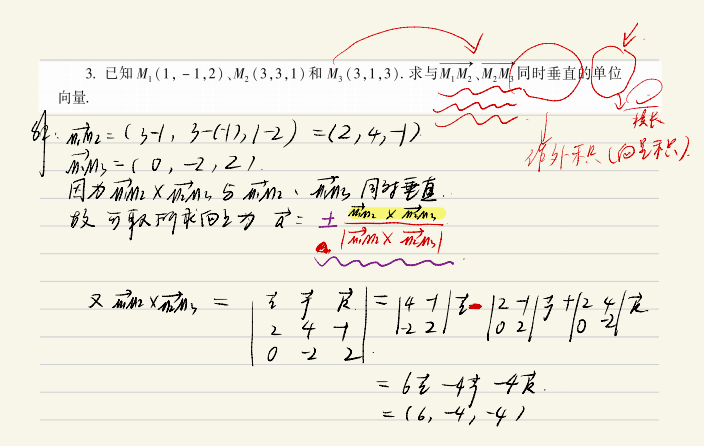 3. 已知 M₁(1, -1,2)、M₂(3,3,1)和 M₃(3,1,3). 求与$\overrightarrow{M_1M_2}$、$\overrightarrow{M_2M_3}$同时垂直的单位
向量.
模长
作外积(向量积).
解: $\overrightarrow{M_1M_2}$ = (3-1, 3-(-1), 1-2) = (2, 4, -1)
$\overrightarrow{M_2M_3}$ = (0, -2, 2).
因为 $\overrightarrow{M_1M_2}$ × $\overrightarrow{M_2M_3}$ 与 $\overrightarrow{M_1M_2}$、$\overrightarrow{M_2M_3}$ 同时垂直.
故可取所求向量为 $\vec{a}$ = ± $\frac{\overrightarrow{M_1M_2} × \overrightarrow{M_2M_3}}{|\overrightarrow{M_1M_2} × \overrightarrow{M_2M_3}|}$
又 $\overrightarrow{M_1M_2}$ × $\overrightarrow{M_2M_3}$ = $\begin{vmatrix} \vec{i} & \vec{j} & \vec{k} \\ 2 & 4 & -1 \\ 0 & -2 & 2 \end{vmatrix}$ = $\begin{vmatrix} 4 & -1 \\ -2 & 2 \end{vmatrix}\vec{i}$ - $\begin{vmatrix} 2 & -1 \\ 0 & 2 \end{vmatrix}\vec{j}$ + $\begin{vmatrix} 2 & 4 \\ 0 & -2 \end{vmatrix}\vec{k}$
= 6$\vec{i}$ - 4$\vec{j}$ - 4$\vec{k}$.
= (6, -4, -4)